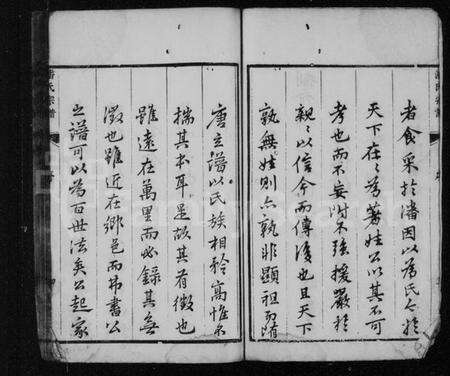 潘氏宗譜
者食采於潘因以為氏今於
天下在〻為著姓公以其不可
考也而不妄附不強援嚴於
親〻以信今而傳後也且天下
孰無姓則亦孰非顯祖而隋
唐立譜以氏族相矜高惟不
揣其本耳是故其有徵也
雖遠在萬里而必錄其無
徵也雖近在鄉邑而弗書公
之譜可以為百世法矣公起家
潘氏宗譜